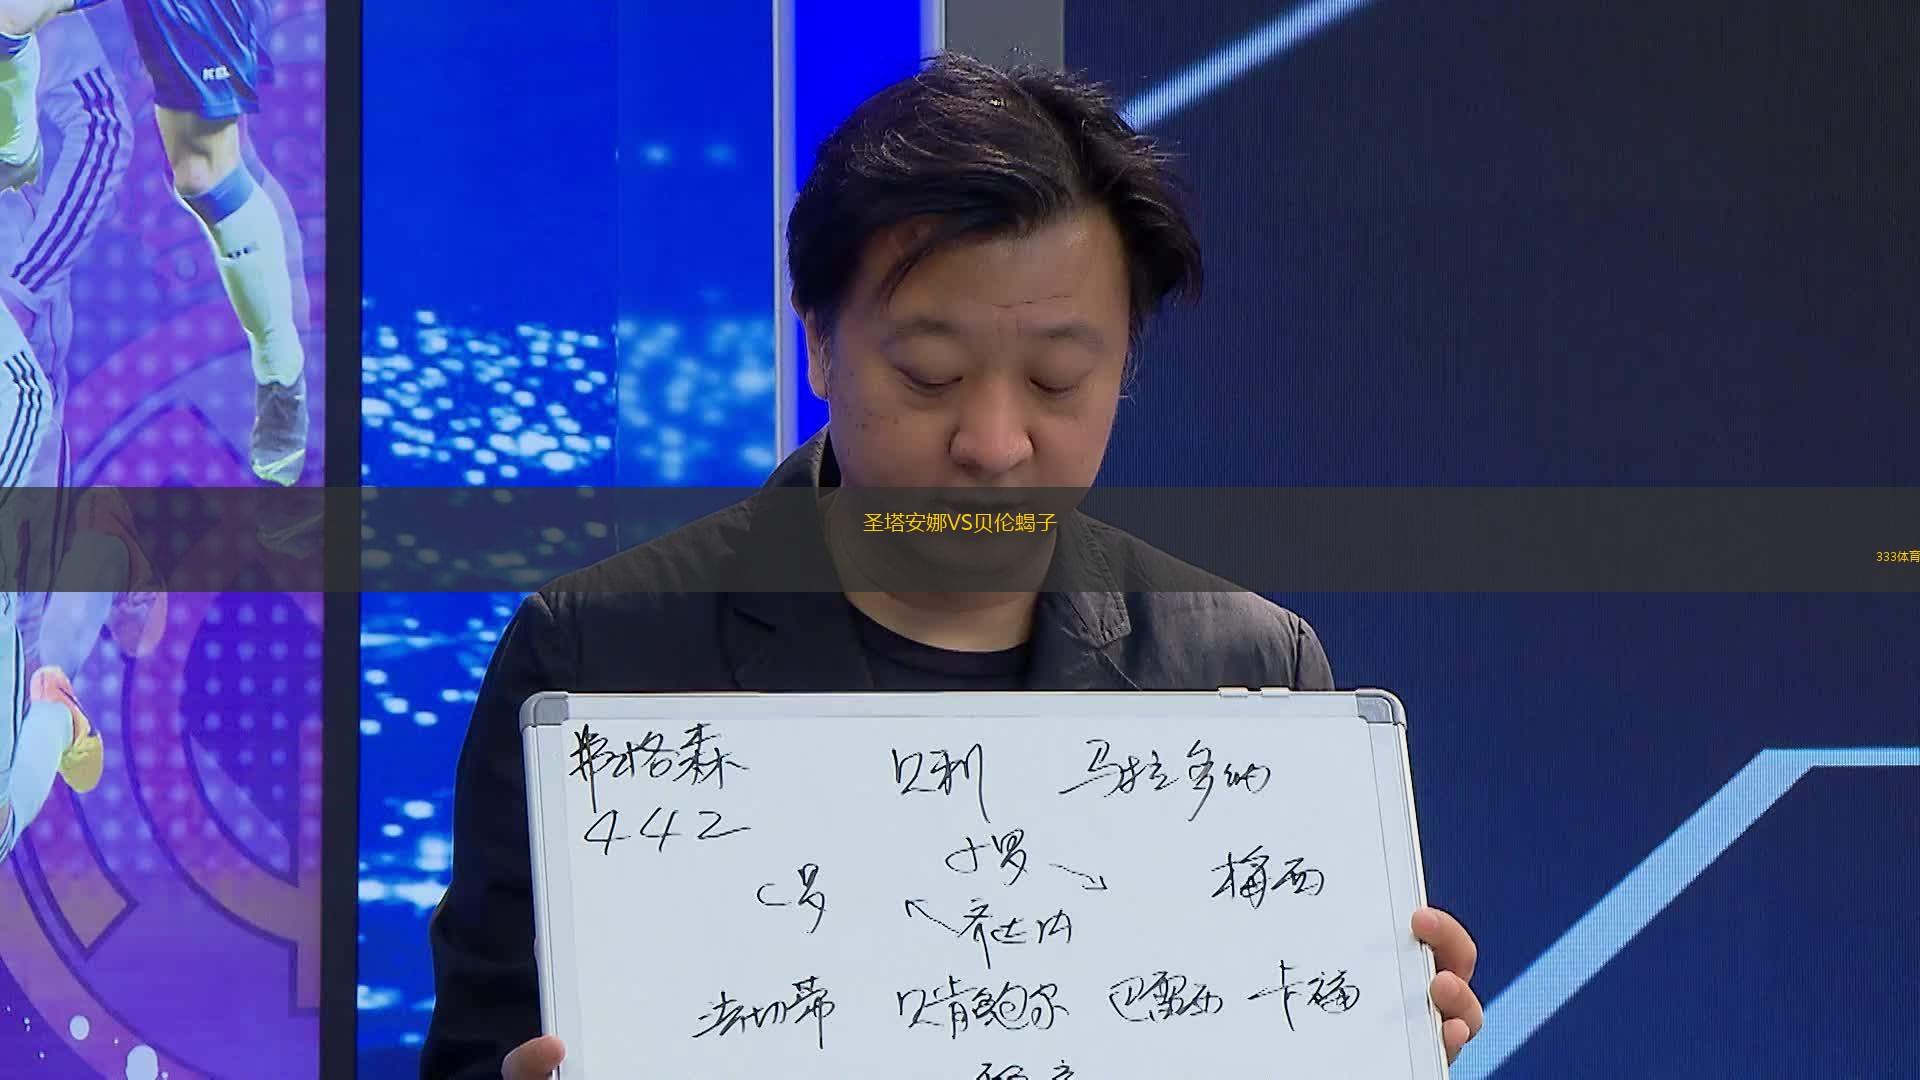 KEL
圣塔安娜VS贝伦蝎子
333体育
弗格森 贝利 马拉多纳
442
小罗
C罗 梅西
齐达内
法切蒂 贝肯鲍尔 巴雷西 卡福